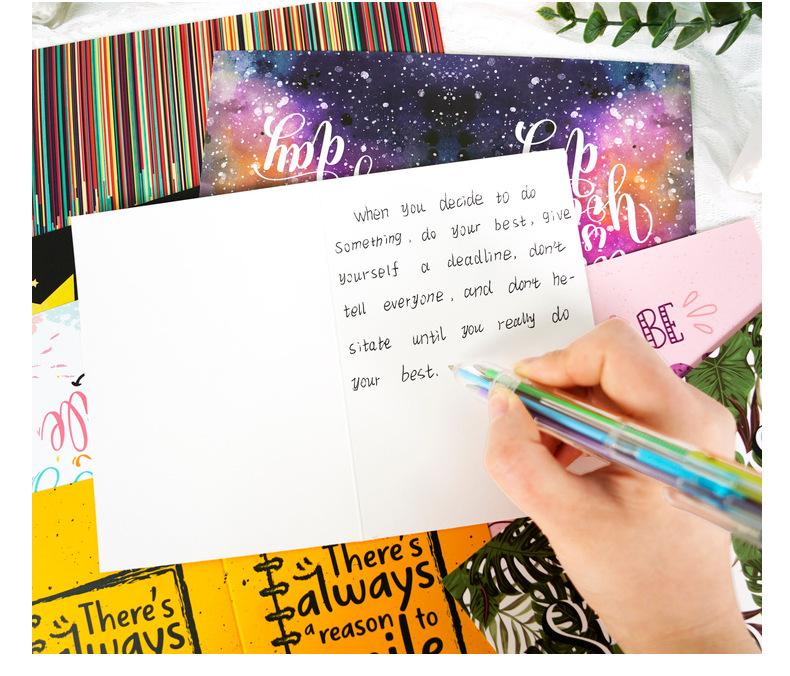 day
day
you
is
When you decide to do
something, do your best, give
yourself a deadline, don't
tell everyone, and don't he-
sitate until you really do
your best.
BE
There's
always
a reason to
There's
always